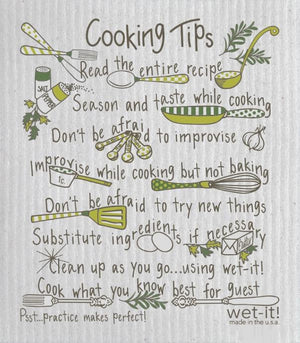 Cooking Tips
Read the entire recipe
Season and taste while cooking
Don't be afraid to improvise
Improvise while cooking but not baking
Don't be afraid to try new things
Substitute ingredients if necessary
Clean up as you go...using wet-it!
Cook what you know best for guest
Psst...practice makes perfect!
wet-it!
made in the u.s.a.